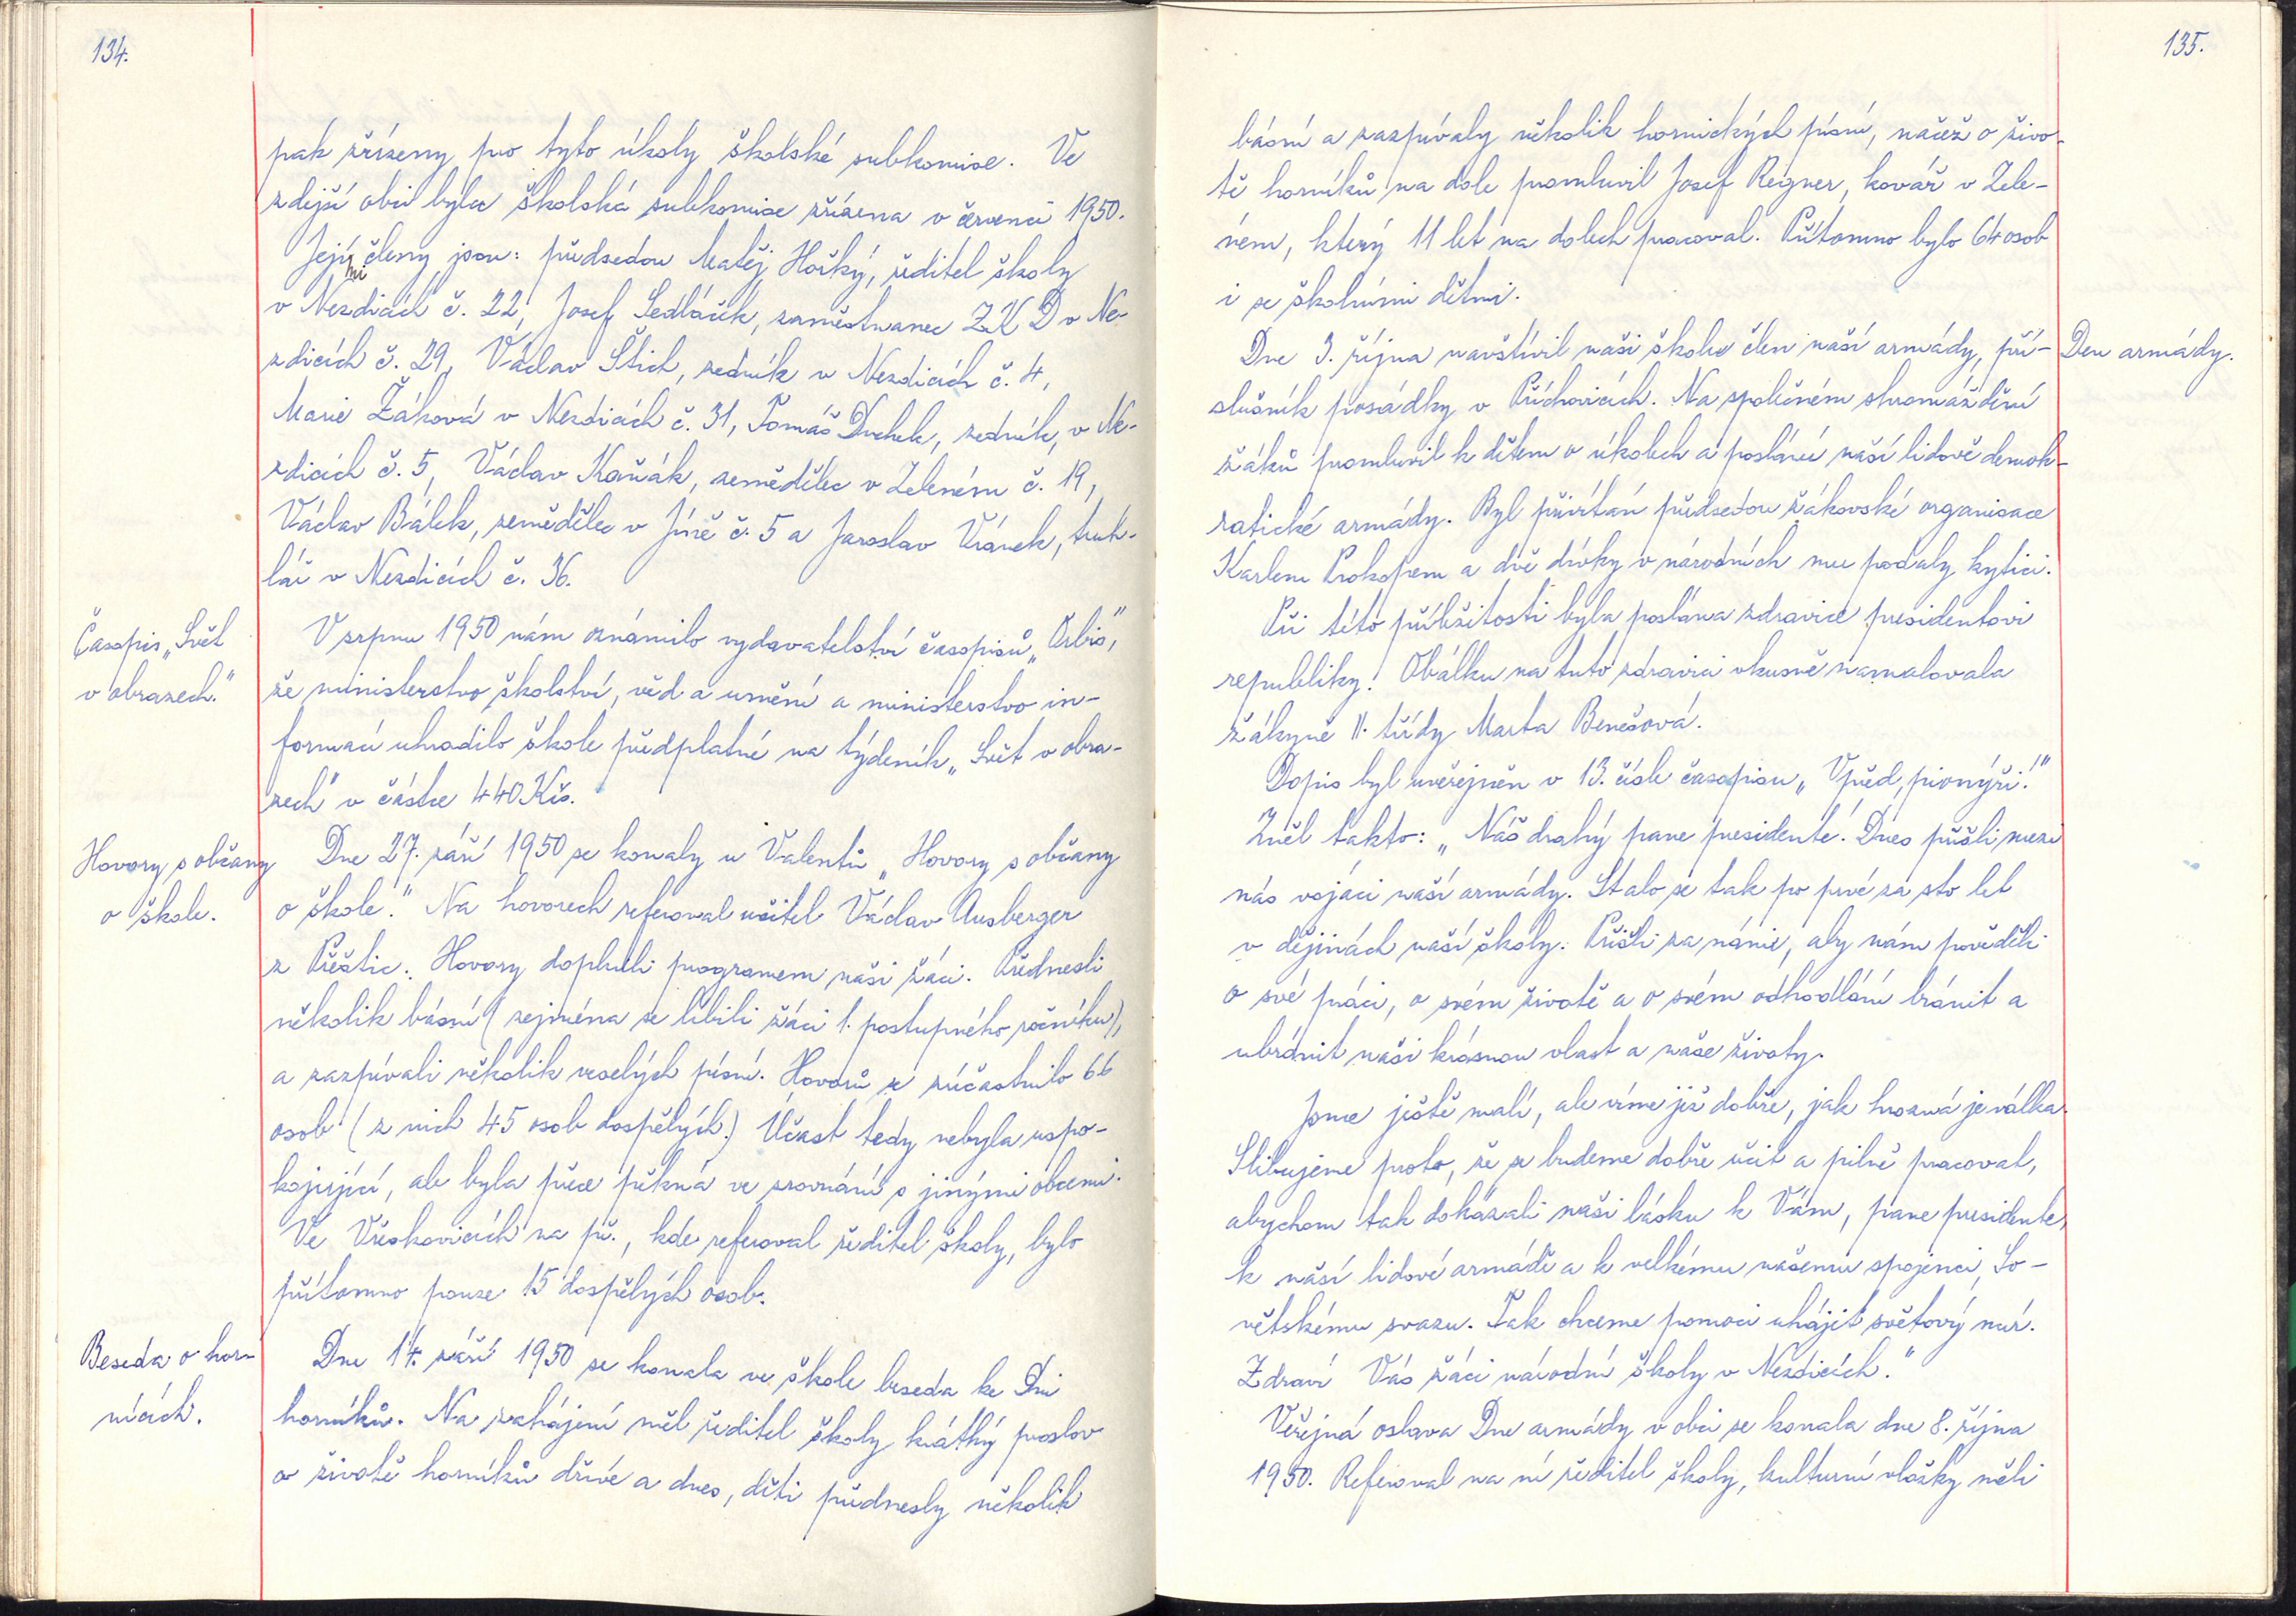 134.
pak zřízeny pro tyto úkoly školské subkomise. Ve
zdejší obci byla školská subkomise zřízena v červenci 1950.
Jejími členy jsou: předsedou Matěj Hořký, ředitel školy
v Nezdicích č. 22, Josef Sedláček, zaměstnanec ZKD v Ne-
zdicích č. 29, Václav Štich, zedník v Nezdicích č. 4,
Marie Žáková v Nezdicích č. 31, Tomáš Duchek, zedník, v Ne-
zdicích č. 5, Václav Kaňák, zemědělec v Zeleném č. 19,
Václav Bálek, zemědělec v Jíně č. 5 a Jaroslav Vránek, truh-
lář v Nezdicích č. 36.
Časopis „Svět
v obrazech."
V srpnu 1950 nám oznámilo vydavatelství časopisů „Orbis",
že ministerstvo školství, věd a umění a ministerstvo in-
formací uhradilo škole předplatné na týdeník „Svět v obra-
zech" v částce 440 Kčs.
Hovory s občany
o škole.
Dne 27. září 1950 se konaly u Valentů „Hovory s občany
o škole." Na hovorech referoval učitel Václav Ausberger
z Přeštic. Hovory doplnili programem naši žáci. Přednesli
několik básní (zejména se líbili žáci 1. postupného ročníku),
a zazpívali několik veselých písní. Hovorů se zúčastnilo 66
osob (z nich 45 osob dospělých.) Účast tedy nebyla uspo-
kojující, ale byla přece pěkná ve srovnání s jinými obcemi.
Ve Vřeskovicích na př., kde referoval ředitel školy, bylo
přítomno pouze 15 dospělých osob.
Beseda o hor-
nících.
Dne 14. září 1950 se konala ve škole beseda ke Dni
horníků. Na zahájení měl ředitel školy krátký proslov
o životě horníků dříve a dnes, děti přednesly několik
135.
básní a zazpívaly několik hornických písní, načež o živo-
tě horníků na dole promluvil Josef Regner, kovář v Zele-
ném, který 11 let na dolech pracoval. Přítomno bylo 64 osob
i se školními dětmi.
Den armády.
Dne 3. října navštívil naši školu člen naší armády, pří-
slušník posádky v Příchovicích. Na společném shromáždění
žáků promluvil k dětem o úkolech a poslání naší lidově demok-
ratické armády. Byl přivítán předsedou žákovské organisace
Karlem Prokopem a dvě dívky v národních mu podaly kytici.
Při této příležitosti byla poslána zdravice presidentovi
republiky. Obálku na tuto zdravici vkusně namalovala
žákyně II. třídy Marta Benešová.
Dopis byl uveřejněn v 13. čísle časopisu „Vpřed, pionýři!"
Zněl takto: „Náš drahý pane presidente! Dnes přišli mezi
nás vojáci naší armády. Stalo se tak po prvé za sto let
v dějinách naší školy. Přišli za námi, aby nám pověděli
o své práci, o svém životě a o svém odhodlání bránit a
ubránit naši krásnou vlast a naše životy.
Jsme ještě malí, ale víme již dobře, jak hrozná je válka.
Slibujeme proto, že se budeme dobře učit a pilně pracovat,
abychom tak dokázali naši lásku k Vám, pane presidente,
k naší lidové armádě a k velkému našemu spojenci, So-
větskému svazu. Tak chceme pomoci uhájit světový mír.
Zdraví Vás žáci národní školy v Nezdicích."
Veřejná oslava Dne armády v obci se konala dne 8. října
1950. Referoval na ní ředitel školy, kulturní vložky měli